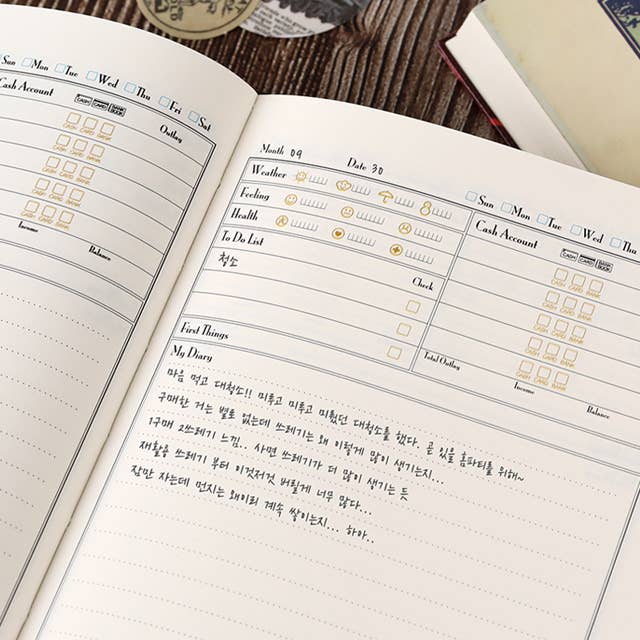 Sun Mon Tue Wed Thu Fri Sat
Cash Account CASH CARD BANK BOOK Outlay
CASH CARD BANK
CASH CARD BANK
CASH CARD BANK
CASH CARD BANK
Income Balance
Month 09 Date 30
Sun Mon Tue Wed Thu
Weather
Feeling
Health
To Do List
청소 Check
First Things
Cash Account CASH CARD BANK BOOK
CASH CARD BANK
CASH CARD BANK
CASH CARD BANK
CASH CARD BANK
CASH CARD BANK
Total Outlay
Income Balance
My Diary
마음 먹고 대청소!! 미루고 미루고 미뤘던 대청소를 했다. 곧 있을 홈파티를 위해~
구매한 거는 별로 없는데 쓰레기는 왜 이렇게 많이 생기는지...
1구매 2쓰레기 느낌.. 사면 쓰레기가 더 많이 생기는 듯
재활용 쓰레기 부터 이것저것 버릴게 너무 많다...
잠만 자는데 먼지는 왜이리 계속 쌓이는지... 하아..